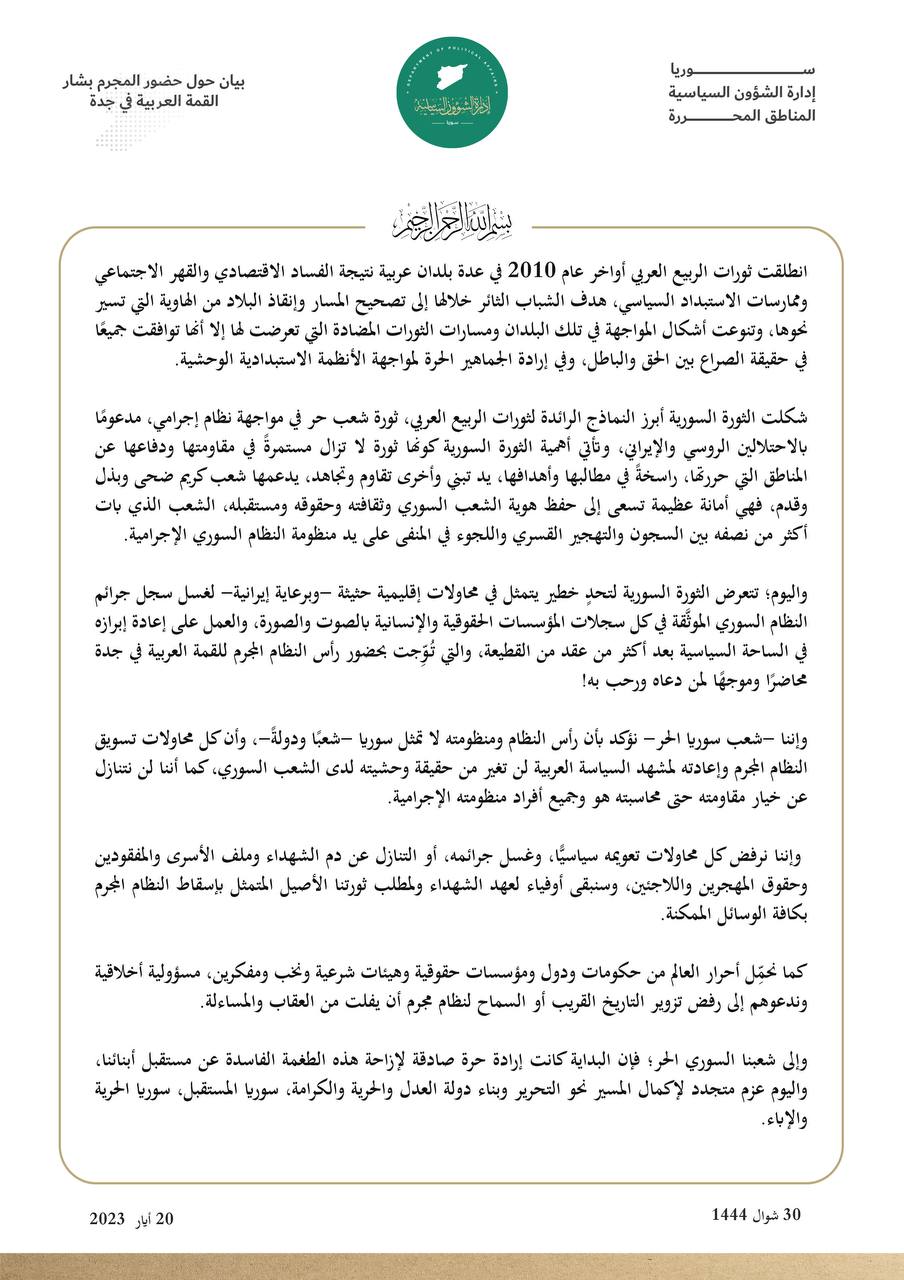 ســـــــــــــــوريا
إدارة الشؤون السياسية
المناطق المحــــــــررة
DEPARTMENT OF POLITICAL AFFAIRS
إدارة الشؤون السياسية
سوريا
بيان حول حضور المجرم بشار
القمة العربية في جدة
بسم الله الرحمن الرحيم
انطلقت ثورات الربيع العربي أواخر عام 2010 في عدة بلدان عربية نتيجة الفساد الاقتصادي والقهر الاجتماعي
وممارسات الاستبداد السياسي، هدف الشباب الثائر خلالها إلى تصحيح المسار وإنقاذ البلاد من الهاوية التي تسير
نحوها، وتنوعت أشكال المواجهة في تلك البلدان ومسارات الثورات المضادة التي تعرضت لها إلا أنها توافقت جميعًا
في حقيقة الصراع بين الحق والباطل، وفي إرادة الجماهير الحرة لمواجهة الأنظمة الاستبدادية الوحشية.
شكلت الثورة السورية أبرز النماذج الرائدة لثورات الربيع العربي، ثورة شعب حر في مواجهة نظام إجرامي، مدعومًا
بالاحتلالين الروسي والإيراني، وتأتي أهمية الثورة السورية كونها ثورة لا تزال مستمرةً في مقاومتها ودفاعها عن
المناطق التي حررتها، راسخةً في مطالبها وأهدافها، يد تبني وأخرى تقاوم وتجاهد، يدعمها شعب كريم ضحى وبذل
وقدم، فهي أمانة عظيمة تسعى إلى حفظ هوية الشعب السوري وثقافته وحقوقه ومستقبله، الشعب الذي بات
أكثر من نصفه بين السجون والتهجير القسري واللجوء في المنفى على يد منظومة النظام السوري الإجرامية.
واليوم؛ تتعرض الثورة السورية لتحدٍ خطير يتمثل في محاولات إقليمية حثيثة –وبرعاية إيرانية– لغسل سجل جرائم
النظام السوري الموثَّقة في كل سجلات المؤسسات الحقوقية والإنسانية بالصوت والصورة، والعمل على إعادة إبرازه
في الساحة السياسية بعد أكثر من عقد من القطيعة، والتي تُوّجت بحضور رأس النظام المجرم للقمة العربية في جدة
محاضرًا وموجهًا لمن دعاه ورحب به!
وإننا –شعب سوريا الحر– نؤكد بأن رأس النظام ومنظومته لا تمثل سوريا –شعبًا ودولةً–، وأن كل محاولات تسويق
النظام المجرم وإعادته لمشهد السياسة العربية لن تغير من حقيقة وحشيته لدى الشعب السوري، كما أننا لن نتنازل
عن خيار مقاومته حتى محاسبته هو وجميع أفراد منظومته الإجرامية.
وإننا نرفض كل محاولات تعويمه سياسيًّا، وغسل جرائمه، أو التنازل عن دم الشهداء وملف الأسرى والمفقودين
وحقوق المهجرين واللاجئين، وسنبقى أوفياء لعهد الشهداء ولمطلب ثورتنا الأصيل المتمثل بإسقاط النظام المجرم
بكافة الوسائل الممكنة.
كما نحمِّل أحرار العالم من حكومات ودول ومؤسسات حقوقية وهيئات شرعية ونخب ومفكرين، مسؤولية أخلاقية
وندعوهم إلى رفض تزوير التاريخ القريب أو السماح لنظام مجرم أن يفلت من العقاب والمساءلة.
وإلى شعبنا السوري الحر؛ فإن البداية كانت إرادة حرة صادقة لإزاحة هذه الطغمة الفاسدة عن مستقبل أبنائنا،
واليوم عزم متجدد لإكمال المسير نحو التحرير وبناء دولة العدل والحرية والكرامة، سوريا المستقبل، سوريا الحرية
والإباء.
30 شوال 1444
20 أيار 2023